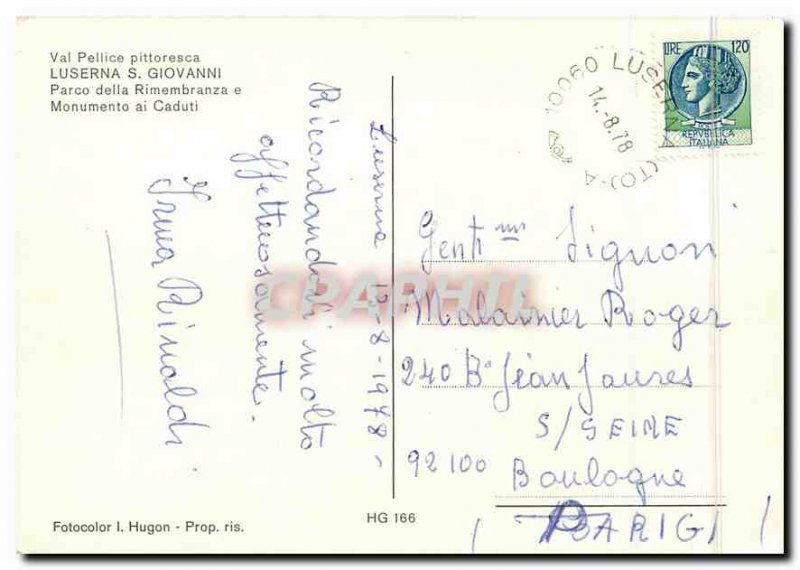 Val Pellice pittoresca
LUSERNA S. GIOVANNI
Parco della Rimembranza e
Monumento ai Caduti
Luserna 13-8-1978 -
Ricordandovi molto
affettuosamente.
Irma Rinaldi
10060 LUSERNA (TO) A
14.-8.78
LIRE 120
REPVBBLICA
ITALIANA
Genti mi Signori
Malainier Roger
240 Bd Jean Jaures
S/SEINE
92100 Boulogne
(PARIGI)
CPAPHIL
Fotocolor I. Hugon - Prop. ris.
HG 166